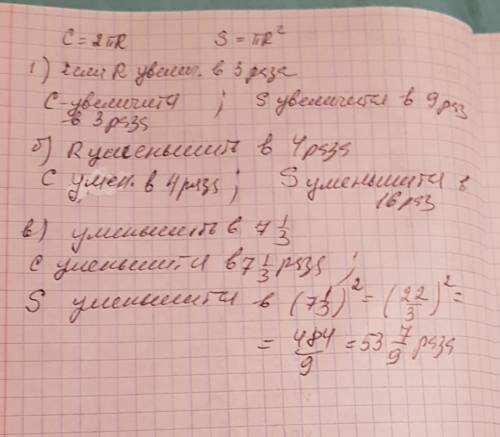 C = 2πR S = πR²
1) Если R увелич. в 3 раза
C - увеличится ; S увеличится в 9 раз
- в 3 раза
б) R уменьшить в 4 раза
C умен. в 4 раза; S уменьшится в
16 раз
в) уменьшить в 7 1/3
C уменьшится в 7 1/3 раза ;
S уменьшится в (7 1/3)² = (22/3)² =
= 484/9 = 53 7/9 раза